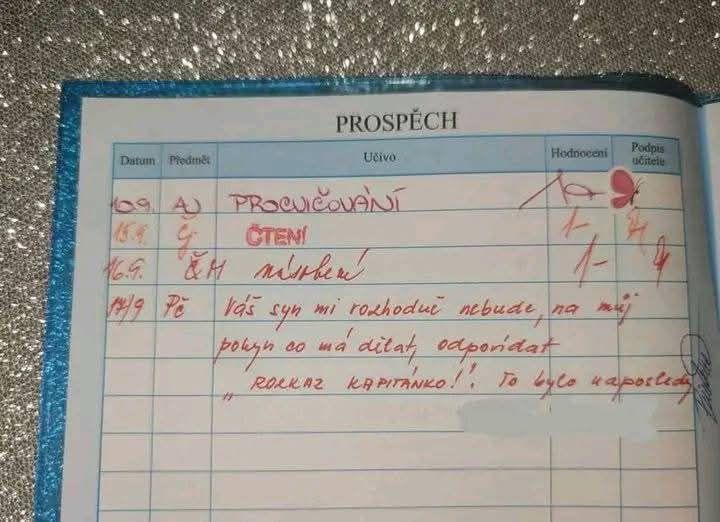 PROSPĚCH
Datum Předmět Učivo Hodnocení Podpis učitele
10.9. AJ PROCVIČOVÁNÍ 1a
15.9. Čj ČTENÍ 1-
16.9. ČM násobení 1-
17/9 Pč Váš syn mi rozhodně nebude, na můj
pokyn co má dělat, odpovídat
„ROZKAZ KAPITÁNKO!“. To bylo naposledy